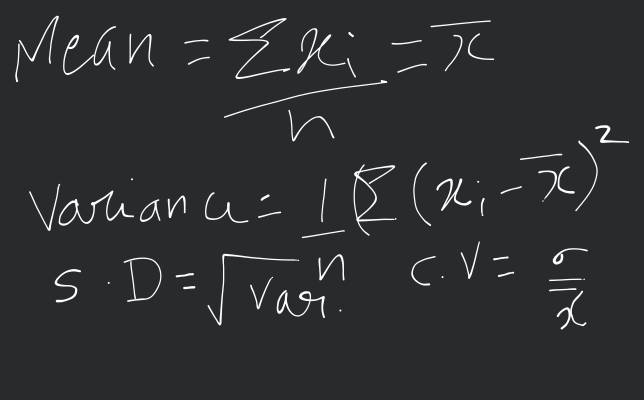 Mean = Σxi/n = x̄
Variance = 1/n (Σ(xi - x̄)²
S.D = √Var. C.V = σ/x̄